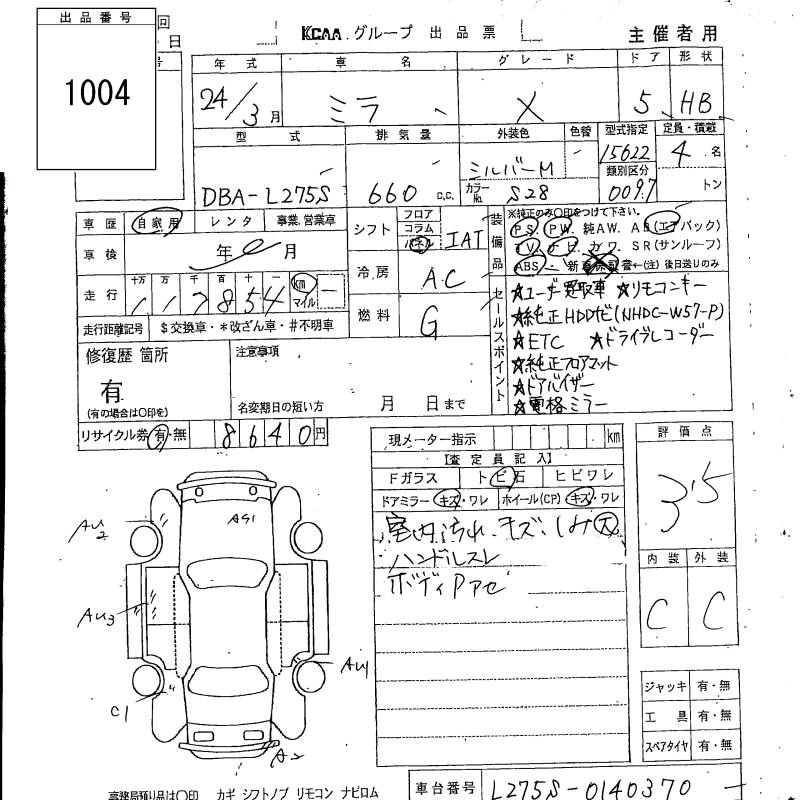 出品番号
1004
回
日
号
KCAA グループ 出品票
主催者用
年式 車名 グレード ドア 形状
24/3月 ミラ X 5 HB
型式 排気量 外装色 色替 型式指定 定員・積載
DBA-L275S 660 C.C. シルバーM 15622 4名
カラーNo. S28 類別区分 0097 トン
車歴 自家用 レンタ 事業.営業車
シフト フロア コラム パネル IAT
装備品
※純正のみ○印をつけて下さい。
PS PW 純AW. AB(エアバック)
TV ナビ カワ SR(サンルーフ)
ABS 新車保証書←(注)後日送りのみ
車検 年 月
冷房 AC
走行 十万 万 千 百 十 一
117854 km マイル
燃料 G
走行距離記号 $交換車・*改ざん車・#不明車
セールスポイント
★ユーザー買取車 ★リモコンキー
★純正HDDナビ(NHDC-W57-P)
★ETC ★ドライブレコーダー
★純正フロアマット
★ドアバイザー
★電格ミラー
修復歴 箇所
有
(有の場合は○印を)
注意事項
名変期日の短い方 月 日まで
リサイクル券 有・無 8640円
現メーター指示 km
【査定員記入】
Fガラス トビ石 ヒビワレ
ドアミラー キズ・ワレ ホイール(CP) キズ・ワレ
室内汚れ キズ シミ大
ハンドルスレ
ボディPアセ
評価点
3.5
内装 外装
C C
AG1
AU2
AU3
AU1
C1
A2
ジャッキ 有・無
工具 有・無
スペアタイヤ 有・無
事務局預り品は○印 カギ シフトノブ リモコン ナビロム
車台番号 L275S-0140370